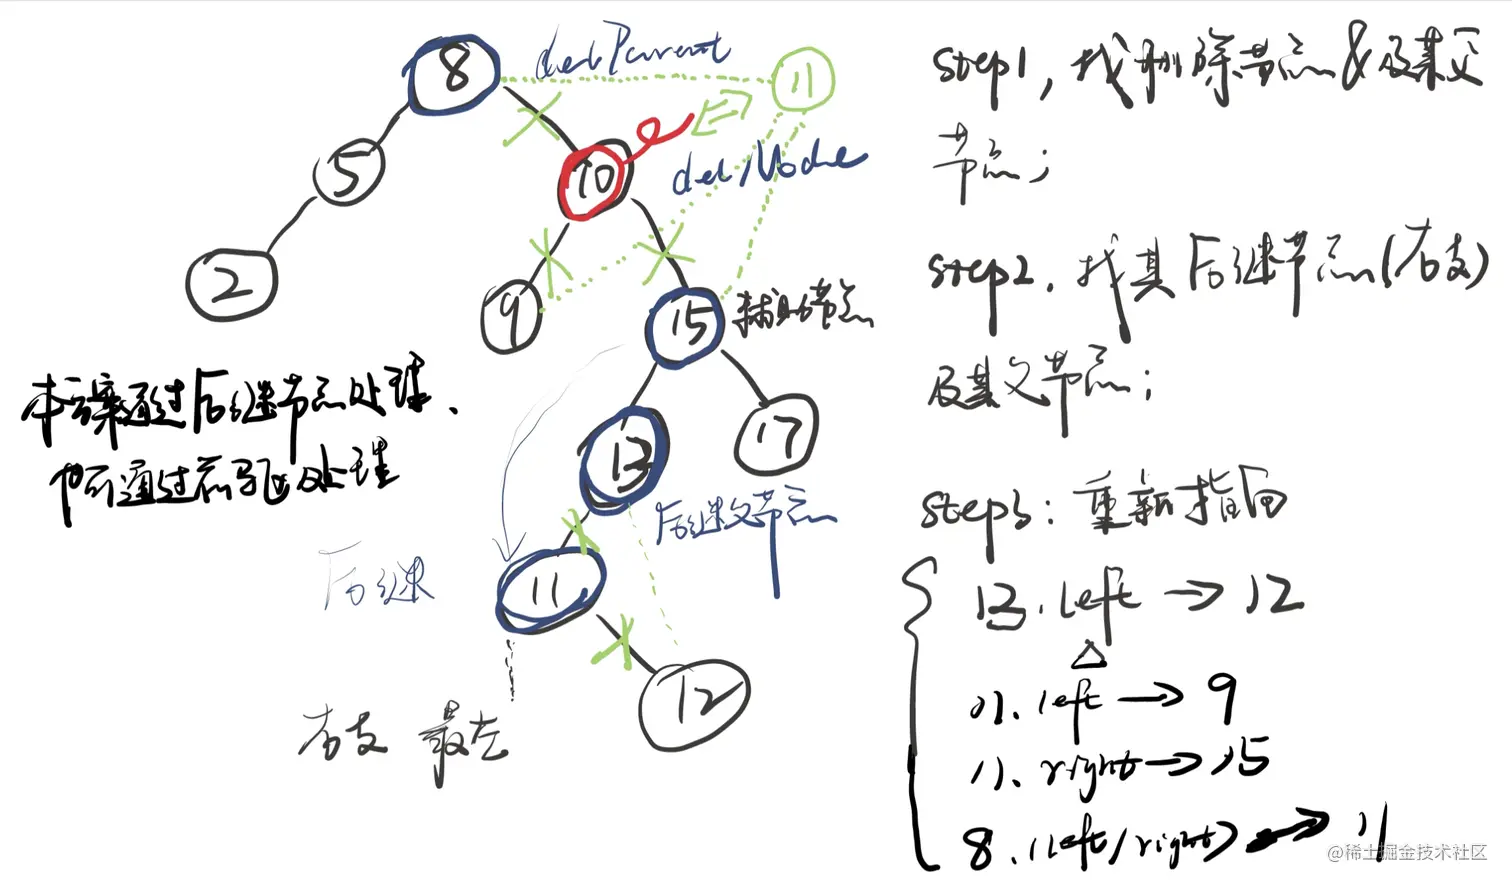 8
delParent
11
step1, 找删除节点&及其父
节点;
5
10
delNode
2
9
15
辅助节点
step2. 找其后继节点(右支)
及其父节点;
本方案通过后继节点处理、
也可通过前驱处理
13
17
后继父节点
step3: 重新指向
后继
11
13.left → 12
12
右支 最左
11.left → 9
11.right → 15
8.(left/right) → 11
@稀土掘金技术社区